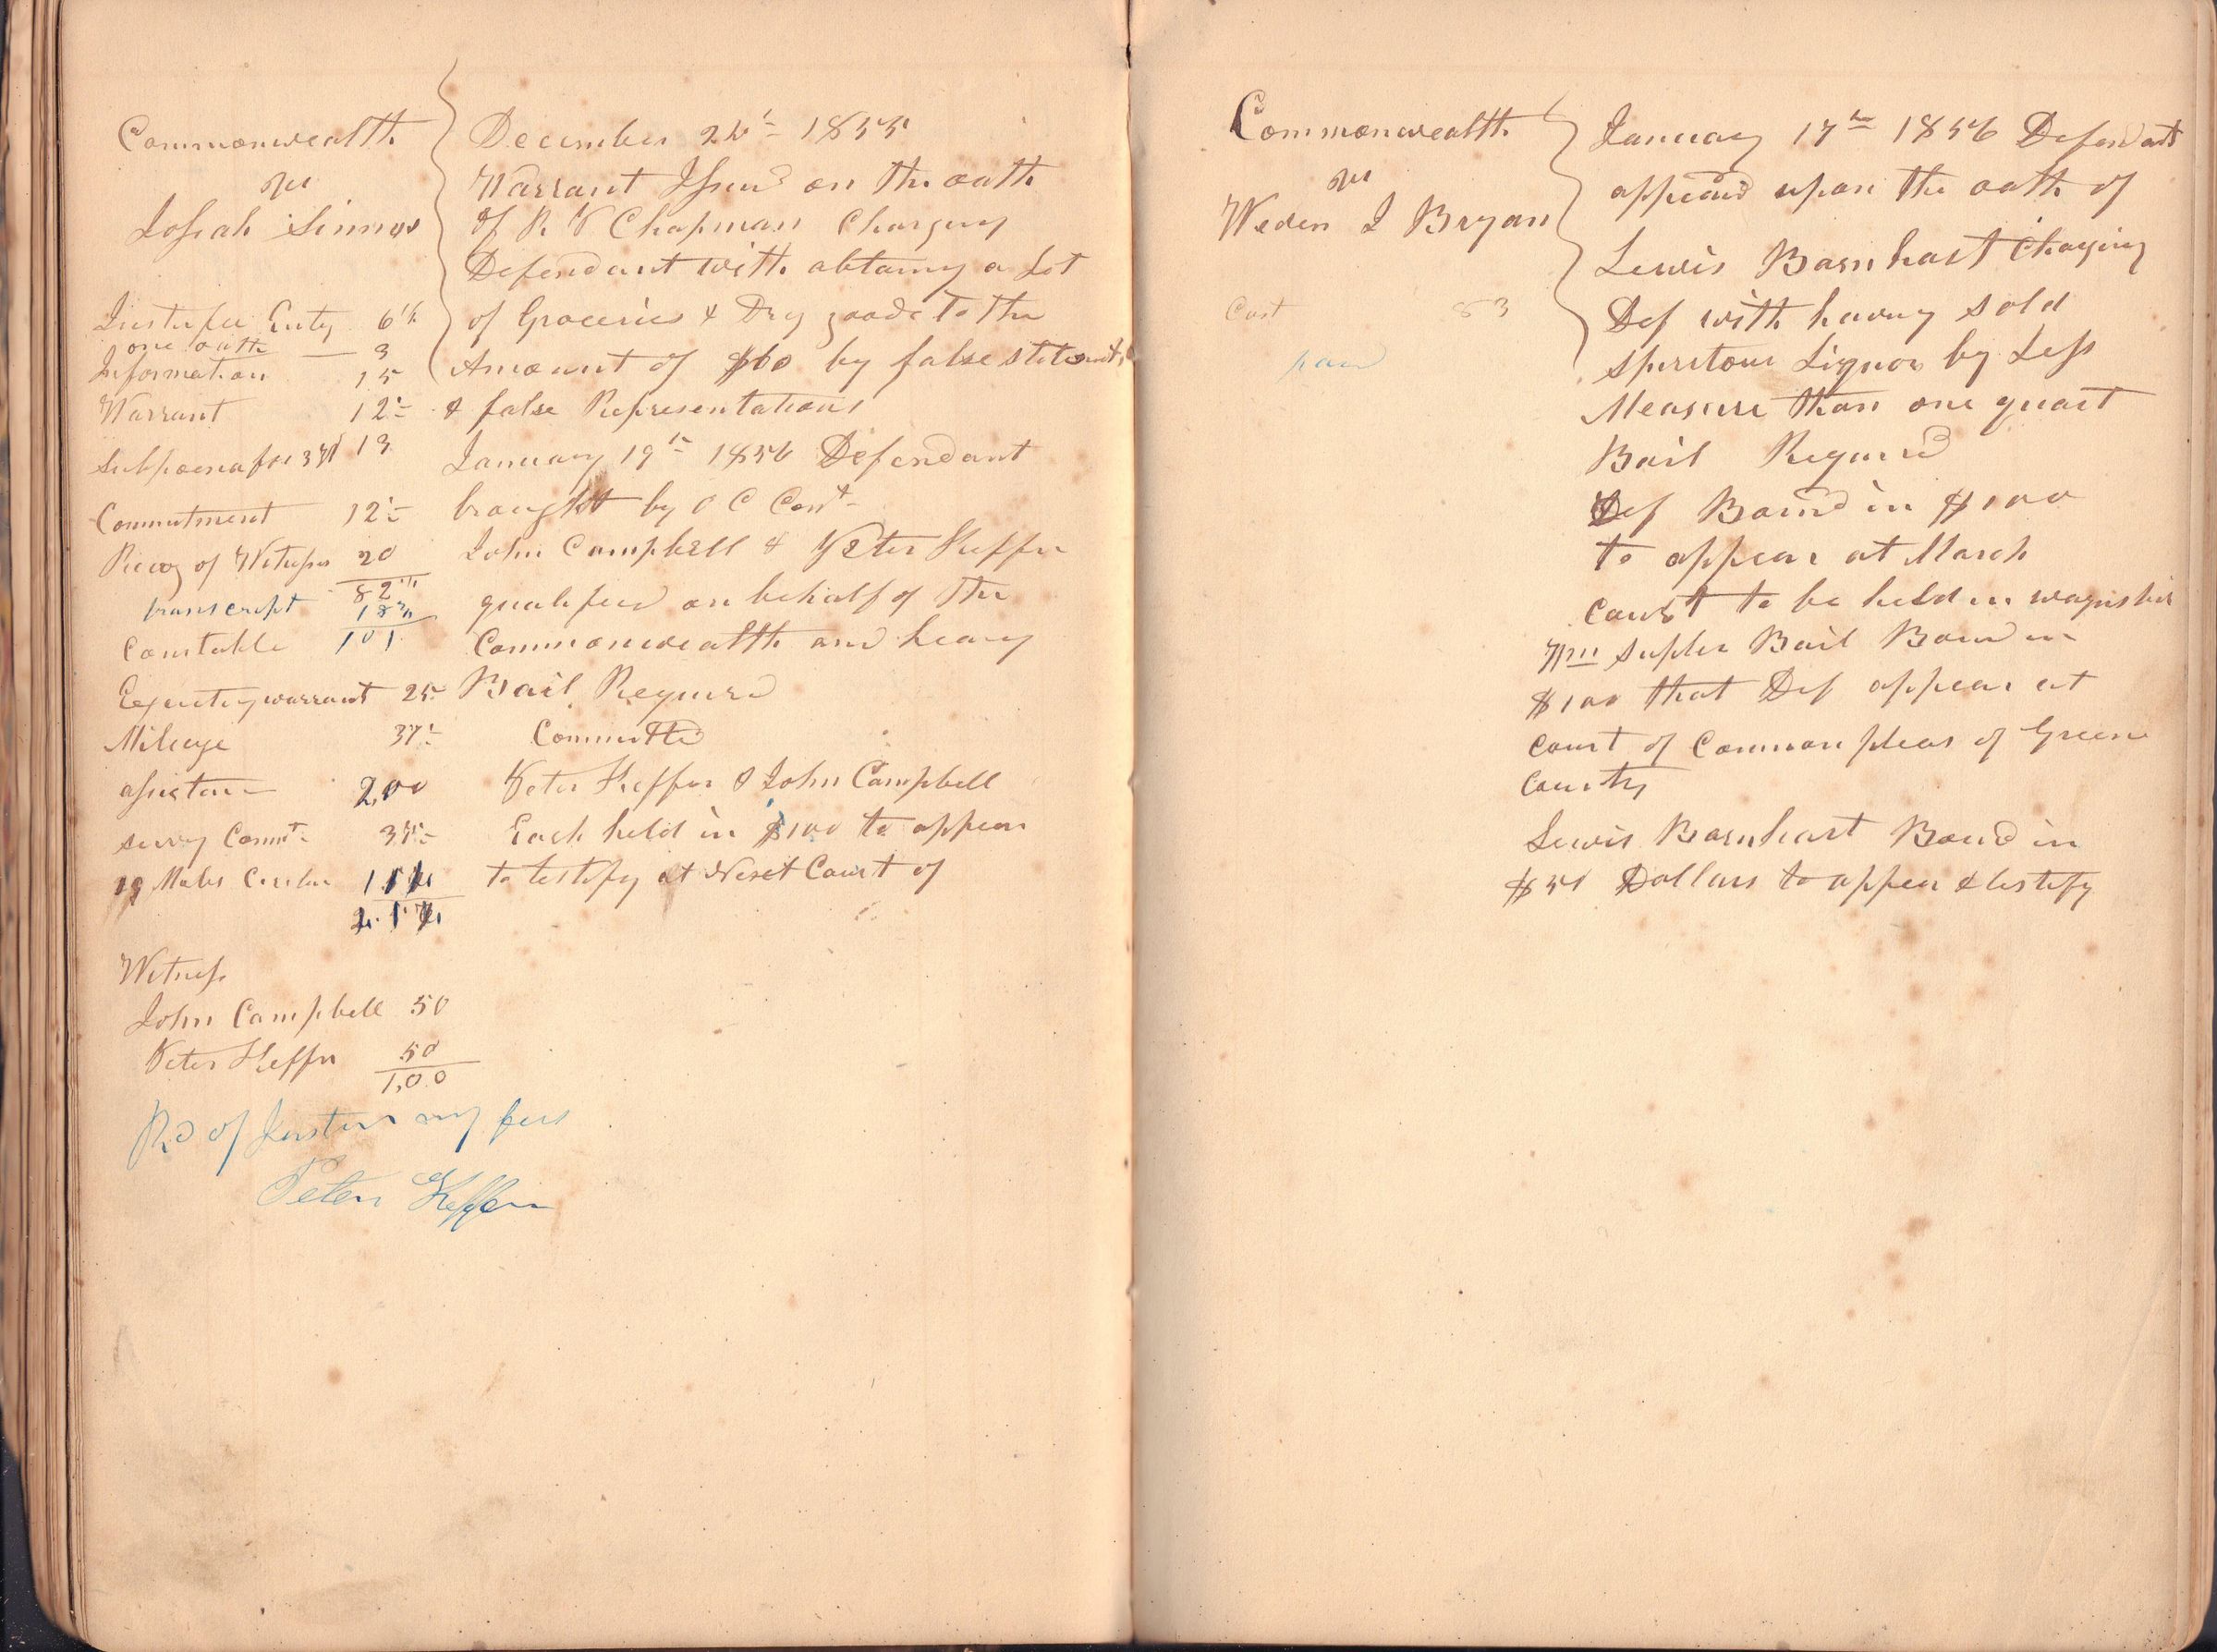 Commonwealth
vs
Josiah
December 1855
Warrant Issued on the oath
of R V Chapman Charging
Defendant with obtaing a Lot
of Groceries & Dry goods To the
Amount of $60 by false statements
& false Representations
January 19th 1856 Defendant
brought by O C Const
John Campbell & Peter Heffer
qualified on behalf of The
Commonwealth and heaing
Bail Required
Committed
Peter Heffer & John Campbell
Each held in $100 to appear
to testify at Next Court of
Entry 6 1/4
one oath 3
Information 15
Warrant 12 1/2
Subpoena for 13
Commitment 12 1/2
Recog of Witness 20
82 1/4
transcript 18 3/4
101
Constable
Executing warrant 25
Mileage 37 1/2
assistance 2,00
serving Commt 37 1/2
19 Miles
Witness
John Campbell 50
Peter Heffer 50
1,00
Rd of Justice my fees
Peter Heffer
Commonwealth
vs
J Bryan
Cost 83
paid
January 17th 1856 Defendant
appeard upon the oath of
Lewis Barnhart Charging
Def with having sold
spiritous Liquor by Less
Measure than one quart
Bail Required
Def Bound in $100
to appear at March
Court to be held in
Bail Bound in
$100 that Def appear at
Court of Common pleas of Greene
County
Lewis Barnhart Bound in
$50 Dollars to appear & testify